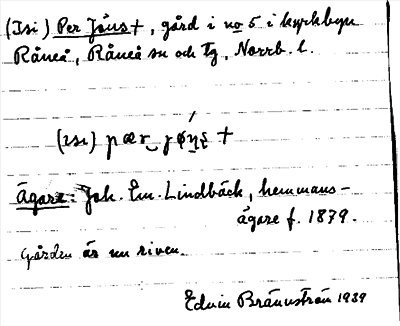 (Isi) Per Jöns+, gård i no 5 i kyrkbyn
Råneå, Råneå sn och tg, Norrb. l.
(ɪsɪ) pær‿
Ägare: Joh. Em. Lindbäck, hemmans-
ägare f. 1879.
Gården är nu riven.
Edvin Brännström 1939